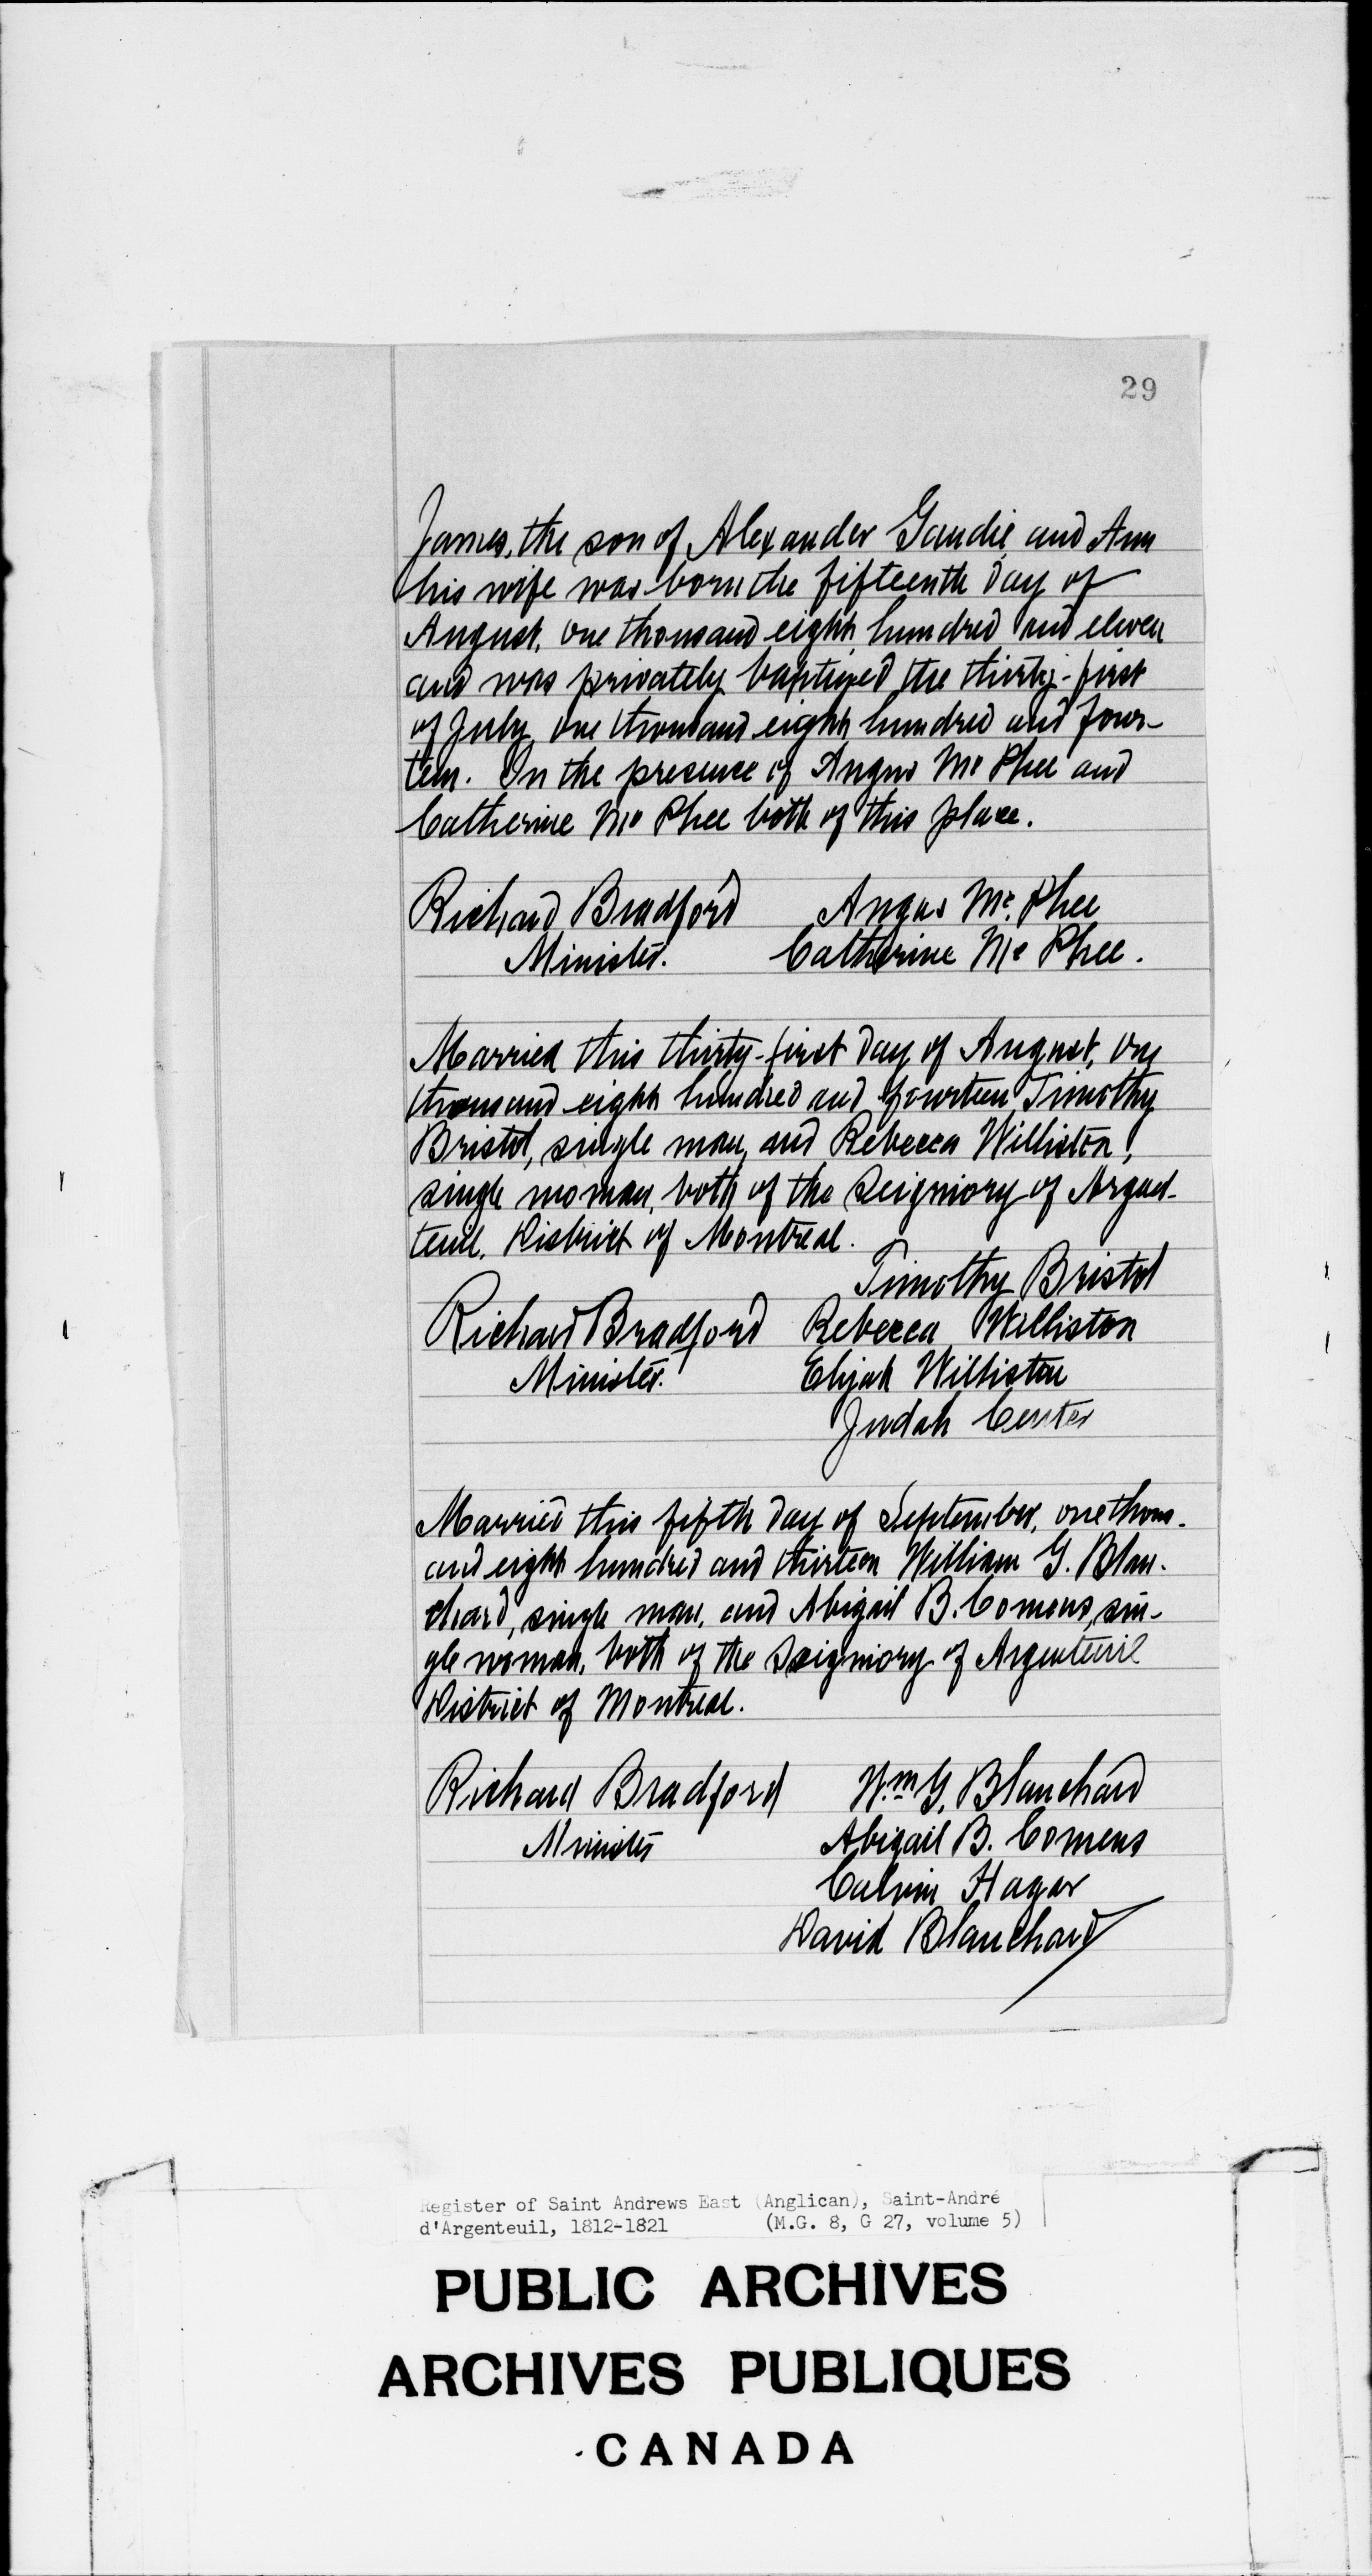 29
James, the son of Alexander Gaudie and Ann
his wife was born the fifteenth day of
August, one thousand eight hundred and eleven
and was privately baptized the thirty-first
of July, one thousand eight hundred and four-
teen. In the presence of Angus Mc Phee and
Catherine Mc Phee both of this place.
Richard Bradford Angus Mc. Phee
Minister. Catherine Mc Phee.
Married this thirty-first day of August, one
thousand eight hundred and fourteen Timothy
Bristol, single man, and Rebecca Williston,
single woman, both of the Seigniory of Argen-
teuil. District of Montreal.
Timothy Bristol
Richard Bradford Rebecca Williston
Minister. Elijah Williston
Judah Center
Married this fifth day of September, one thous-
and eight hundred and thirteen William G. Blan-
chard, single man, and Abigail B. Comens, sin-
gle woman, both of the Seigniory of Argenteuil
District of Montreal.
Richard Bradford Wm G. Blanchard
Minister Abigail B. Comens
Calvin Hagar
David Blanchard
Register of Saint Andrews East (Anglican), Saint-André
d'Argenteuil, 1812-1821 (M.G. 8, G 27, volume 5)
PUBLIC ARCHIVES
ARCHIVES PUBLIQUES
CANADA